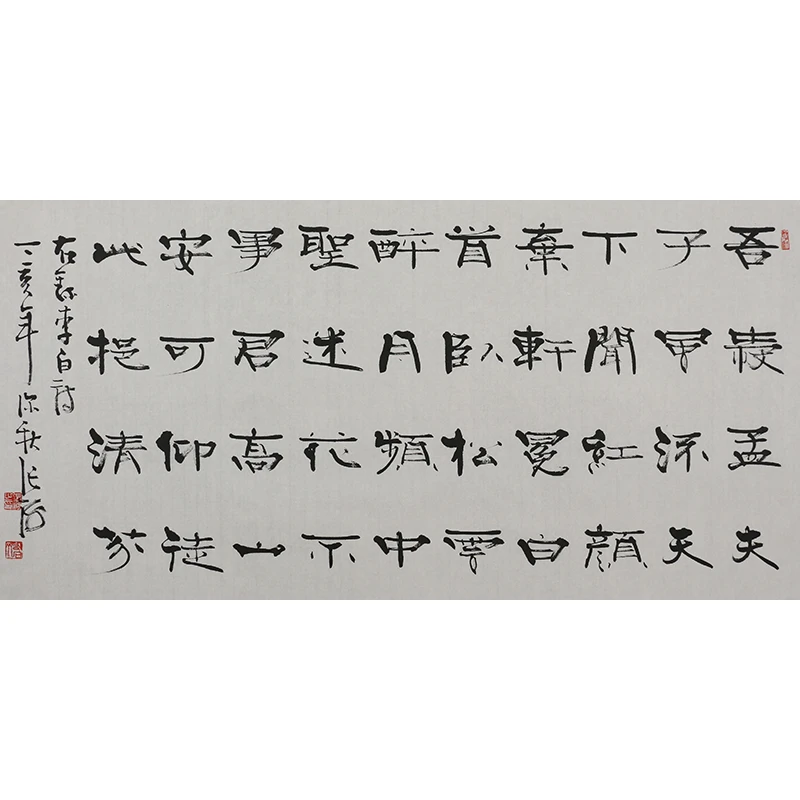 吾愛孟夫
子風流天
下聞紅顔
棄軒冕白
首臥松雲
醉月頻中
聖迷花不
事君高山
安可仰徒
此挹清芬
右錄李白詩
丁亥年深秋